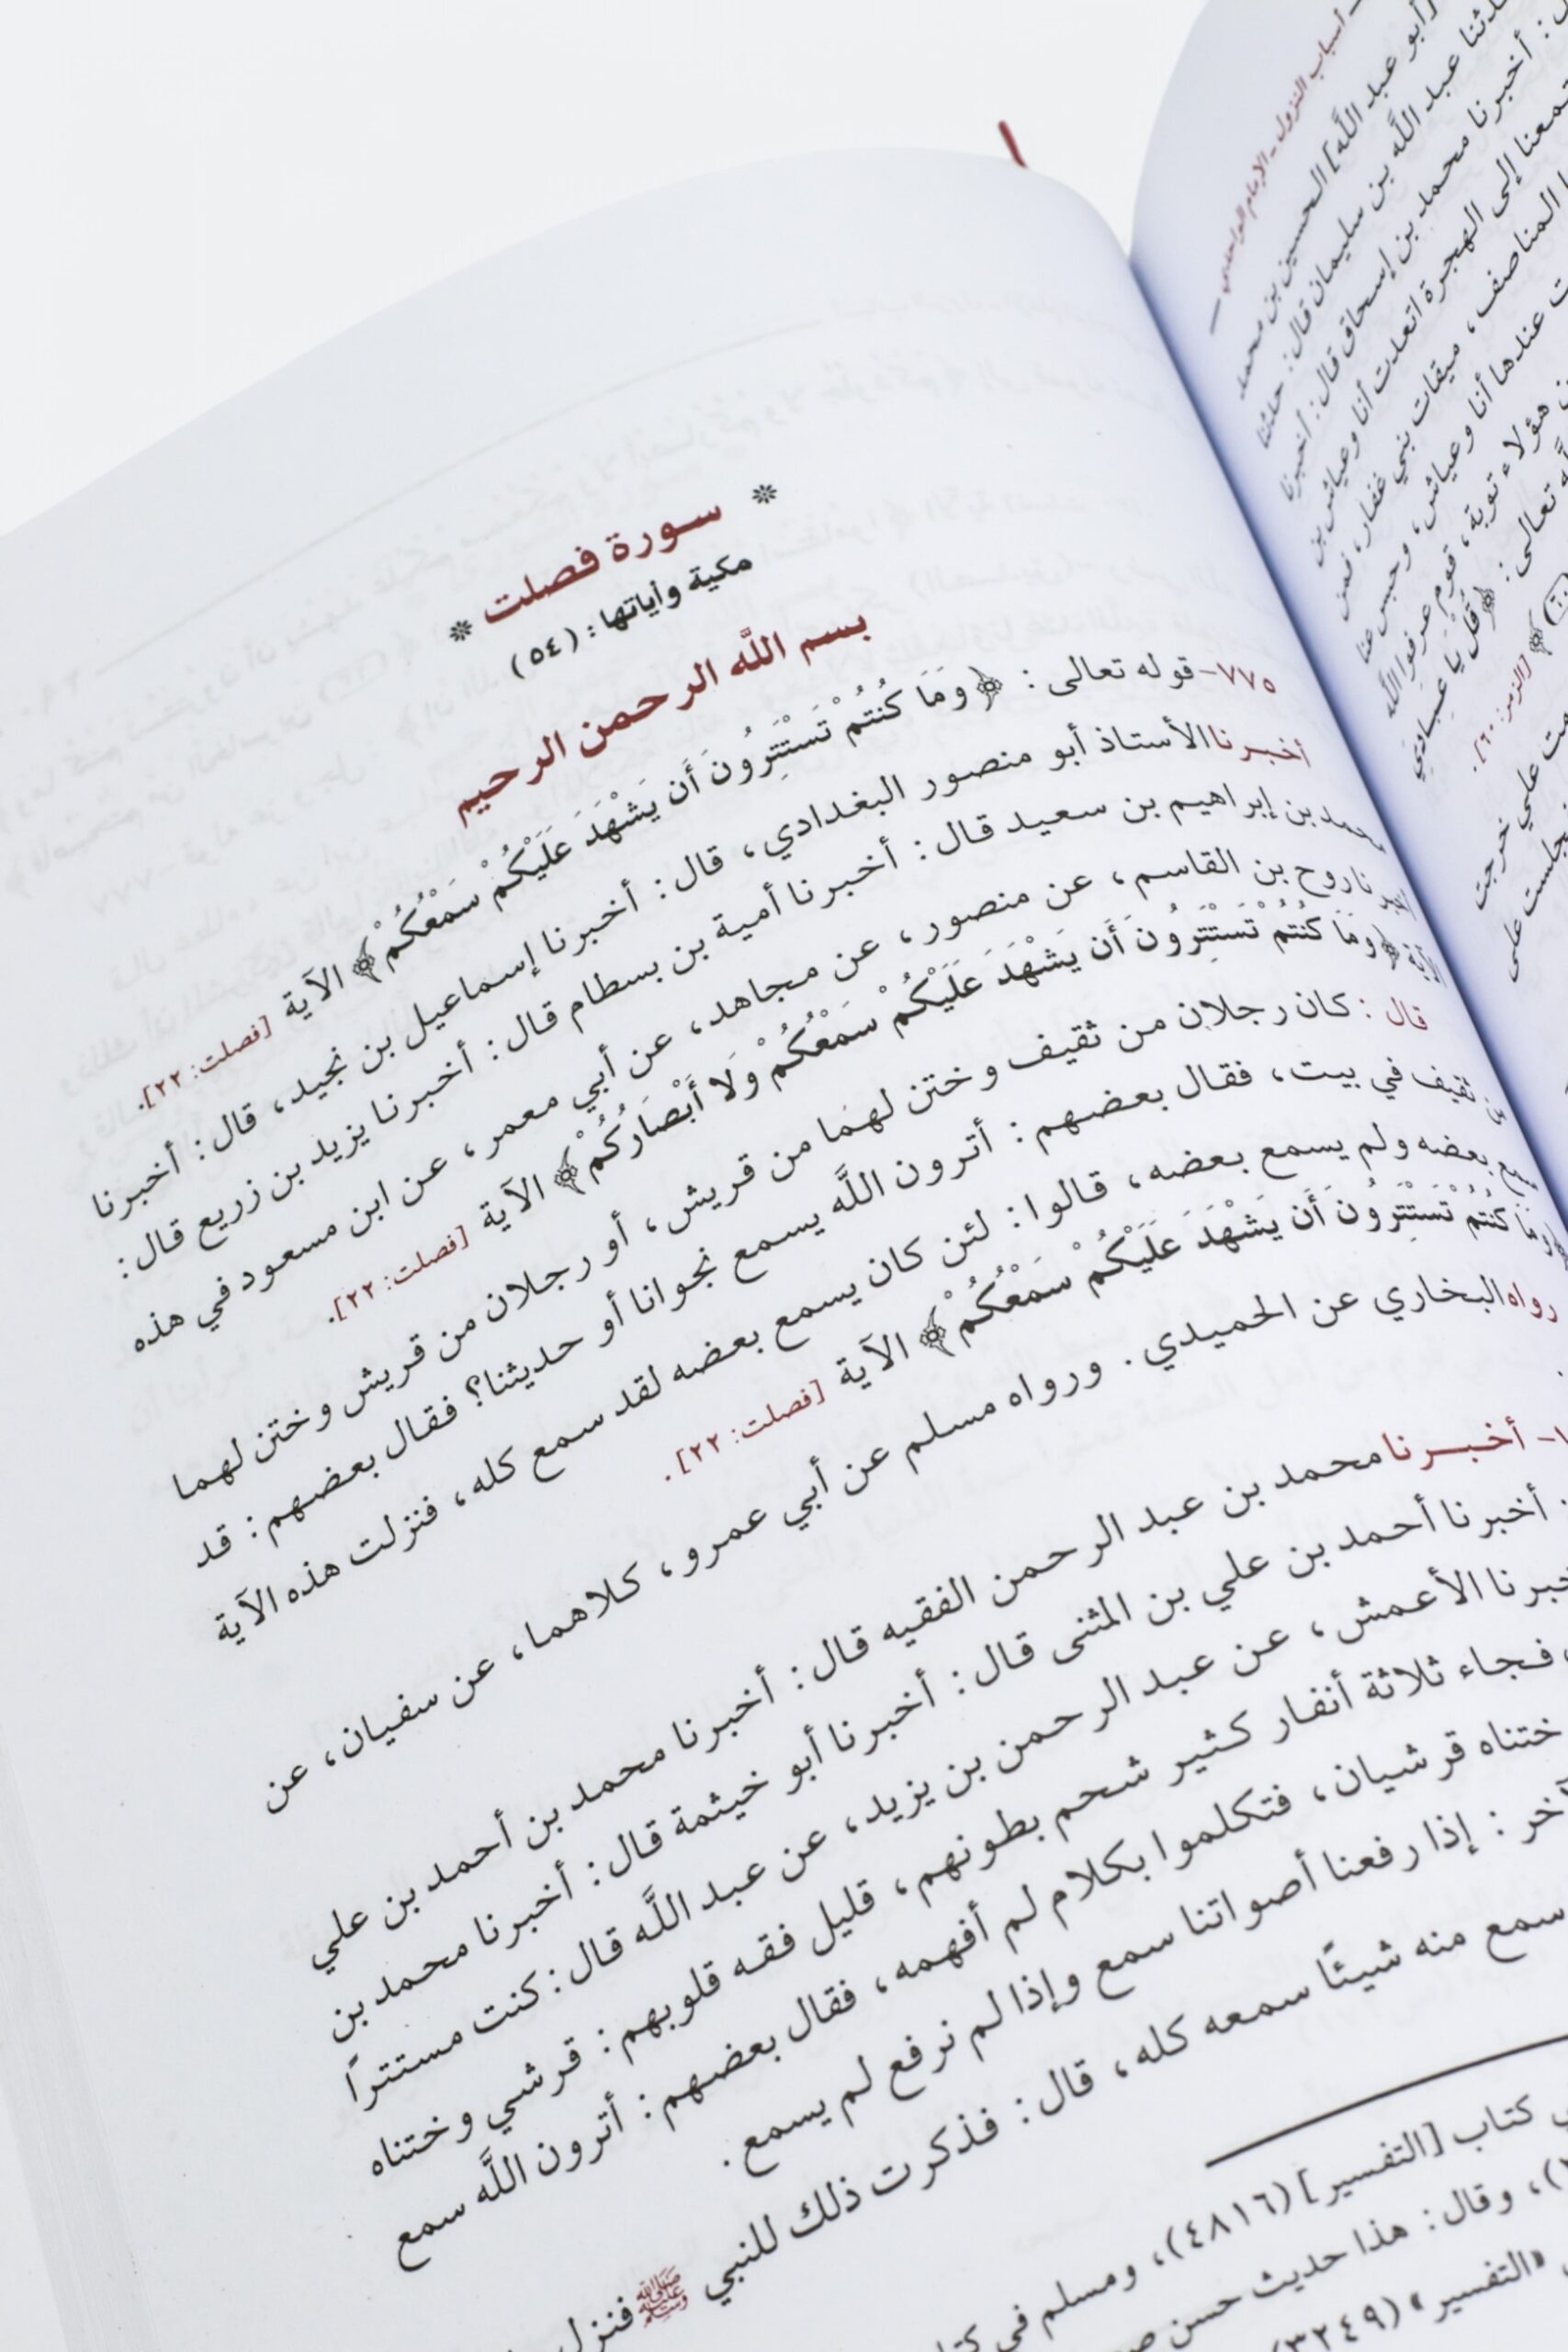 أسباب النزول - الإمام الواحدي
[أبو عبد اللَّه] الحسين بن محمد
عبد اللَّه بن سليمان قال: حدثنا
أخبرنا محمد بن إسحاق قال: أخبرنا
إلى الهجرة اتعدت أنا وعياش بن
المناصف، ميقات بني غفار، فمن
عندها أنا وعياش، وحبس عنا
هؤلاء توبة، قوم عرفوا اللَّه
تعالى: ﴿قُلْ يَا عِبَادِيَ
[الزمر: ٦٠].
علي خرجت
فجلست على
سورة فصلت
مكية وآياتها: (٥٤)
بسم اللَّه الرحمن الرحيم
٧٧٥- قوله تعالى: ﴿وَمَا كُنتُمْ تَسْتَتِرُونَ أَن يَشْهَدَ عَلَيْكُمْ سَمْعُكُمْ﴾ الآية [فصلت: ٢٢].
أخبرنا الأستاذ أبو منصور البغدادي، قال: أخبرنا إسماعيل بن نجيد، قال: أخبرنا
محمد بن إبراهيم بن سعيد قال: أخبرنا أمية بن بسطام قال: أخبرنا يزيد بن زريع قال:
روح بن القاسم، عن منصور، عن مجاهد، عن أبي معمر، عن ابن مسعود في هذه
الآية ﴿وَمَا كُنتُمْ تَسْتَتِرُونَ أَن يَشْهَدَ عَلَيْكُمْ سَمْعُكُمْ وَلَا أَبْصَارُكُمْ﴾ الآية [فصلت: ٢٢].
قال: كان رجلان من ثقيف وختن لهما من قريش، أو رجلان من قريش وختن لهما
ثقيف في بيت، فقال بعضهم: أترون اللَّه يسمع نجوانا أو حديثنا؟ فقال بعضهم: قد
بعضه ولم يسمع بعضه، قالوا: لئن كان يسمع بعضه لقد سمع كله، فنزلت هذه الآية
﴿وَمَا كُنتُمْ تَسْتَتِرُونَ أَن يَشْهَدَ عَلَيْكُمْ سَمْعُكُمْ﴾ الآية [فصلت: ٢٢].
رواه البخاري عن الحميدي. ورواه مسلم عن أبي عمرو، كلاهما، عن سفيان، عن
أخبرنا محمد بن عبد الرحمن الفقيه قال: أخبرنا محمد بن أحمد بن علي
أخبرنا أحمد بن علي بن المثنى قال: أخبرنا أبو خيثمة قال: أخبرنا محمد بن
الأعمش، عن عبد الرحمن بن يزيد، عن عبد اللَّه قال: كنت مستترًا
فجاء ثلاثة أنفار كثير شحم بطونهم، قليل فقه قلوبهم: قرشي وختناه
ختناه قرشيان، فتكلموا بكلام لم أفهمه، فقال بعضهم: أترون اللَّه سمع
إذا رفعنا أصواتنا سمع وإذا لم نرفع لم يسمع.
سمع منه شيئًا سمعه كله، قال: فذكرت ذلك للنبي ﷺ
كتاب [التفسير] (٤٨١٦)، ومسلم في
وقال: هذا حديث حسن
«التفسير» (٣٢٤٩)